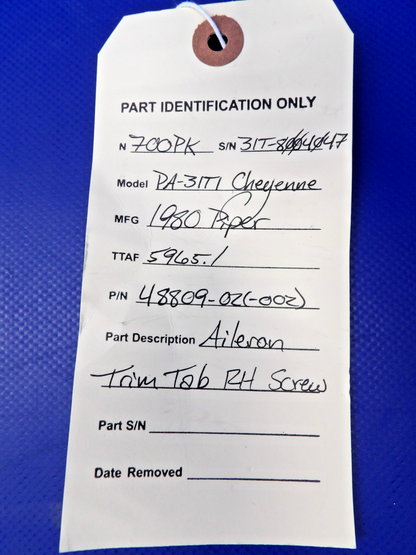 PART IDENTIFICATION ONLY
N 700PK S/N 31T-8004047
Model PA-31T1 Cheyenne
MFG 1980 Piper
TTAF 5965.1
P/N 48809-02(-002)
Part Description Aileron
Trim Tab RH Screw
Part S/N
Date Removed